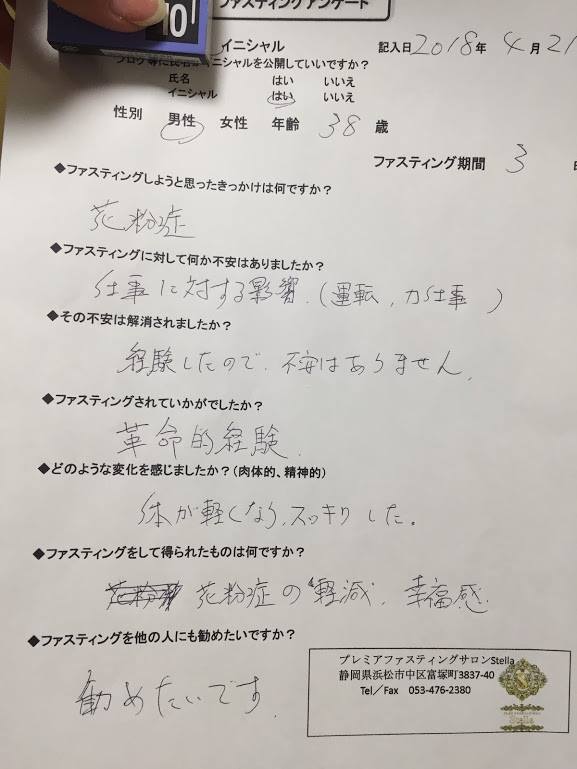 ファスティングアンケート
10
イニシャル
記入日 2018年 4月 21
ブログ等に氏名・イニシャルを公開していいですか?
氏名 はい いいえ
イニシャル はい いいえ
性別 男性 女性 年齢 38 歳
ファスティング期間 3 日
◆ファスティングしようと思ったきっかけは何ですか?
花粉症
◆ファスティングに対して何か不安はありましたか?
仕事に対する影響.(運転,力仕事)
◆その不安は解消されましたか?
経験したので、不安はありません.
◆ファスティングされていかがでしたか?
革命的経験.
◆どのような変化を感じましたか?(肉体的、精神的)
体が軽くなり,スッキリした。
◆ファスティングをして得られたものは何ですか?
花粉症の軽減.幸福感.
◆ファスティングを他の人にも勧めたいですか?
勧めたいです.
プレミアファスティングサロンStella
静岡県浜松市中区富塚町3837-40
Tel/Fax 053-476-2380
Stella